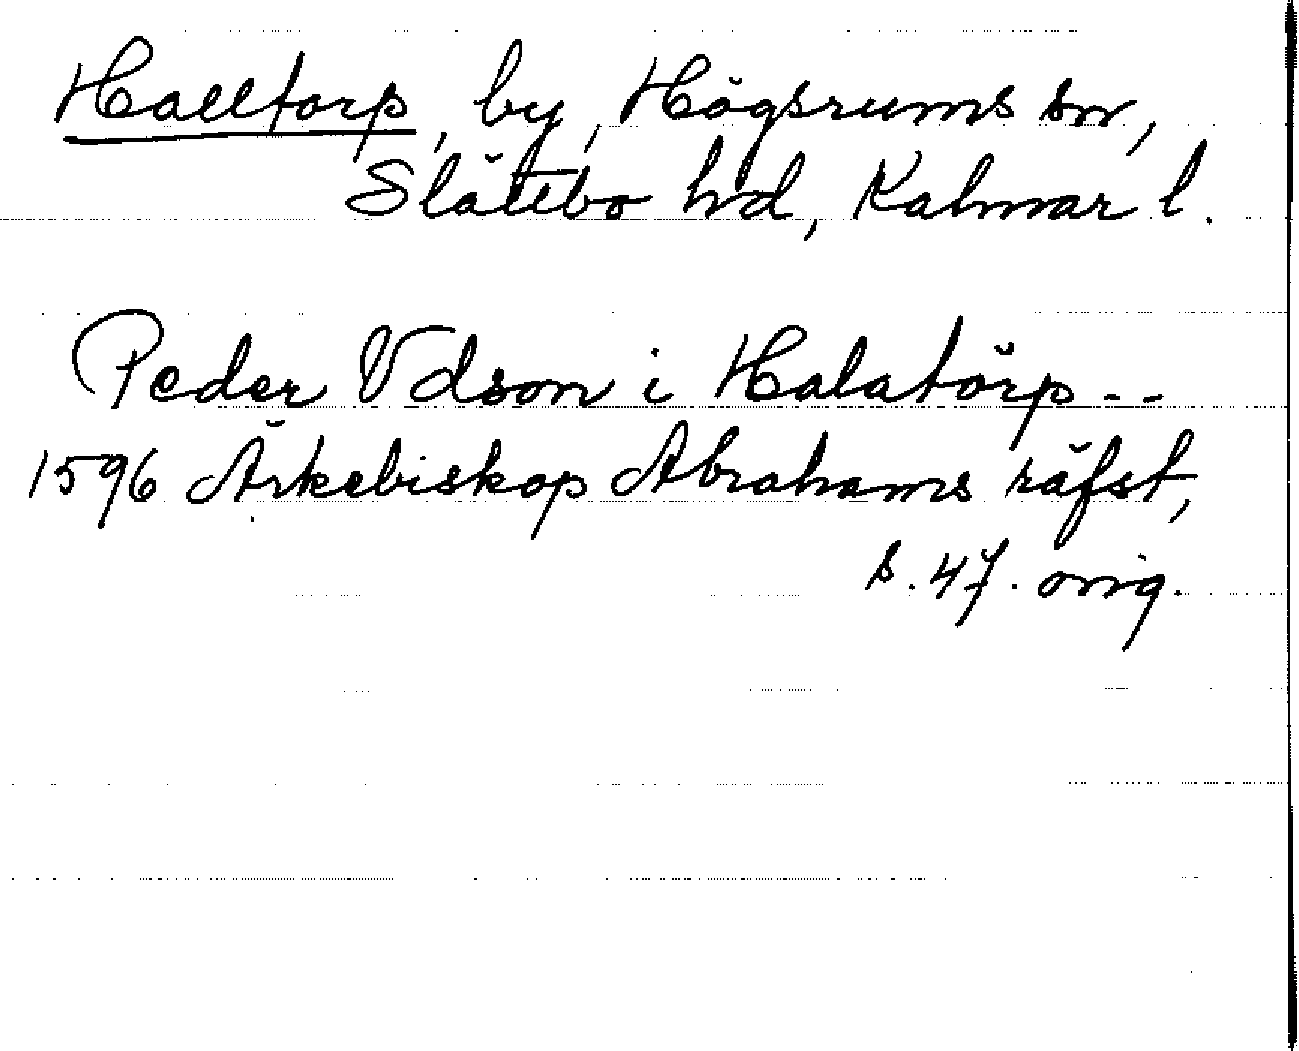 Halltorp, by, Högsrums sn,
Slättbo hd, Kalmar l.
Peder Vdson i Halatörp --
1596 Ärkebiskop Abrahams räfst,
s. 47. orig.